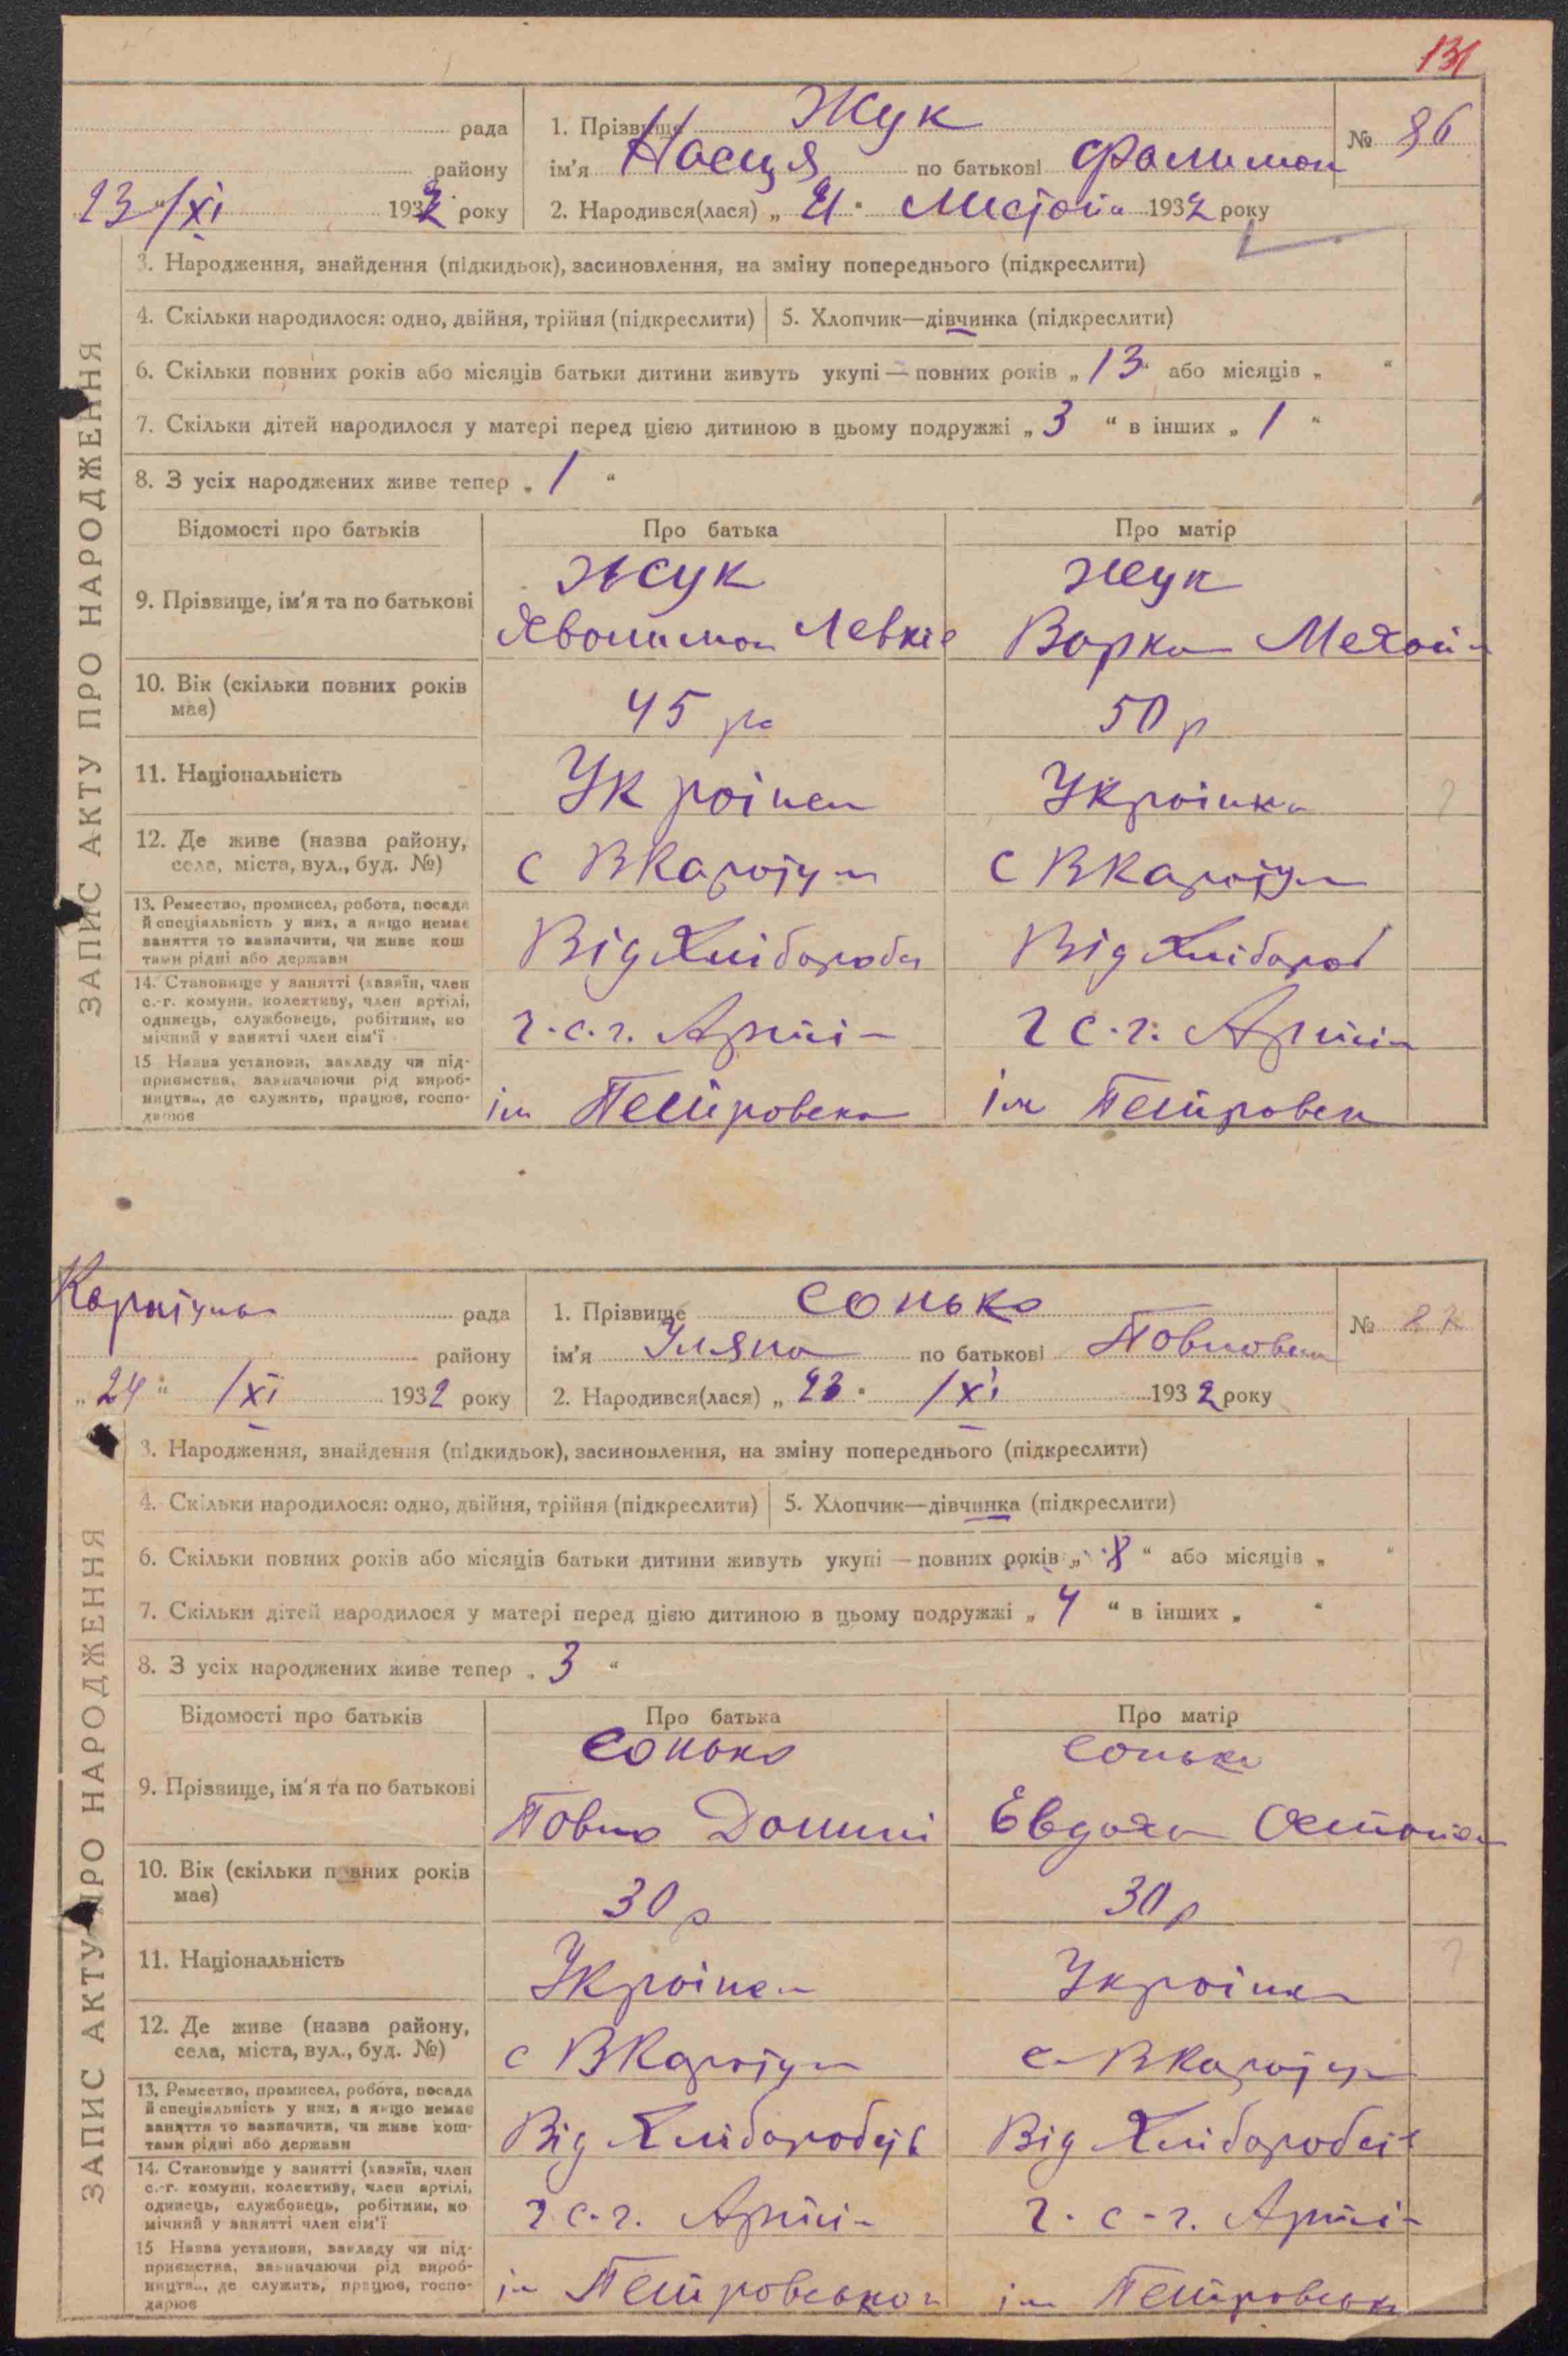 131
рада
1. Прізвище Жук
№ 86
району
ім'я Насця по батькові Фалимон
23/XI 1932 року
2. Народився(лася) „ 21 “ 1932 року
3. Народження, знайдення (підкидьок), засиновлення, на зміну попереднього (підкреслити)
4. Скільки народилося: одно, двійня, трійня (підкреслити)
5. Хлопчик—дівчинка (підкреслити)
6. Скільки повних років або місяців батьки дитини живуть укупі — повних років „ 13 “ або місяців „ “
7. Скільки дітей народилося у матері перед цією дитиною в цьому подружжі „ 3 “ в інших „ 1 “
8. З усіх народжених живе тепер „ 1 “
ЗАПИС АКТУ ПРО НАРОДЖЕННЯ
Відомості про батьків
Про батька
Про матір
9. Прізвище, ім'я та по батькові
Жук
Левків
Жук
Варка
10. Вік (скільки повних років має)
45 р
50 р
11. Національність
Українец
Українка
12. Де живе (назва району, села, міста, вул., буд. №)
с ВКаратул
с ВКаратул
13. Ремество, промисел, робота, посада й спеціяльність у них, а якщо немає заняття то зазначити, чи живе коштами рідні або держави
Від Хліборобс
Від Хлібороб
14. Становище у занятті (хазяїн, член с.-г. комуни, колективу, член артілі, одинець, службовець, робітник, помічний у занятті член сім'ї
г.с.г. Артіл
г с.г. Артіл
15 Назва установи, закладу чи підприємства, зазначаючи рід виробництва, де служить, працює, господарює
ім Петровськ
ім Петровськ
рада
1. Прізвище Сонько
№ 87
району
ім'я Уляна по батькові Павловна
„ 24 “ /XI 1932 року
2. Народився(лася) „ 23 “ /XI 1932 року
3. Народження, знайдення (підкидьок), засиновлення, на зміну попереднього (підкреслити)
4. Скільки народилося: одно, двійня, трійня (підкреслити)
5. Хлопчик—дівчинка (підкреслити)
6. Скільки повних років або місяців батьки дитини живуть укупі — повних років „ 8 “ або місяців „ “
7. Скільки дітей народилося у матері перед цією дитиною в цьому подружжі „ 4 “ в інших „ “
8. З усіх народжених живе тепер „ 3 “
ЗАПИС АКТУ ПРО НАРОДЖЕННЯ
Відомості про батьків
Про батька
Про матір
9. Прізвище, ім'я та по батькові
Сонько
Павло
Сонько
Евдоха Остапов
10. Вік (скільки повних років має)
30 р
30 р
11. Національність
Українец
Українка
12. Де живе (назва району, села, міста, вул., буд. №)
с ВКаратул
с ВКаратул
13. Ремество, промисел, робота, посада й спеціяльність у них, а якщо немає заняття то зазначити, чи живе коштами рідні або держави
Від Хліборобсів
Від Хліборобсів
14. Становище у занятті (хазяїн, член с.-г. комуни, колективу, член артілі, одинець, службовець, робітник, помічний у занятті член сім'ї
г.с.г. Артіл
г.с.г. Артіл
15 Назва установи, закладу чи підприємства, зазначаючи рід виробництва, де служить, працює, господарює
ім Петровського
ім Петровськ